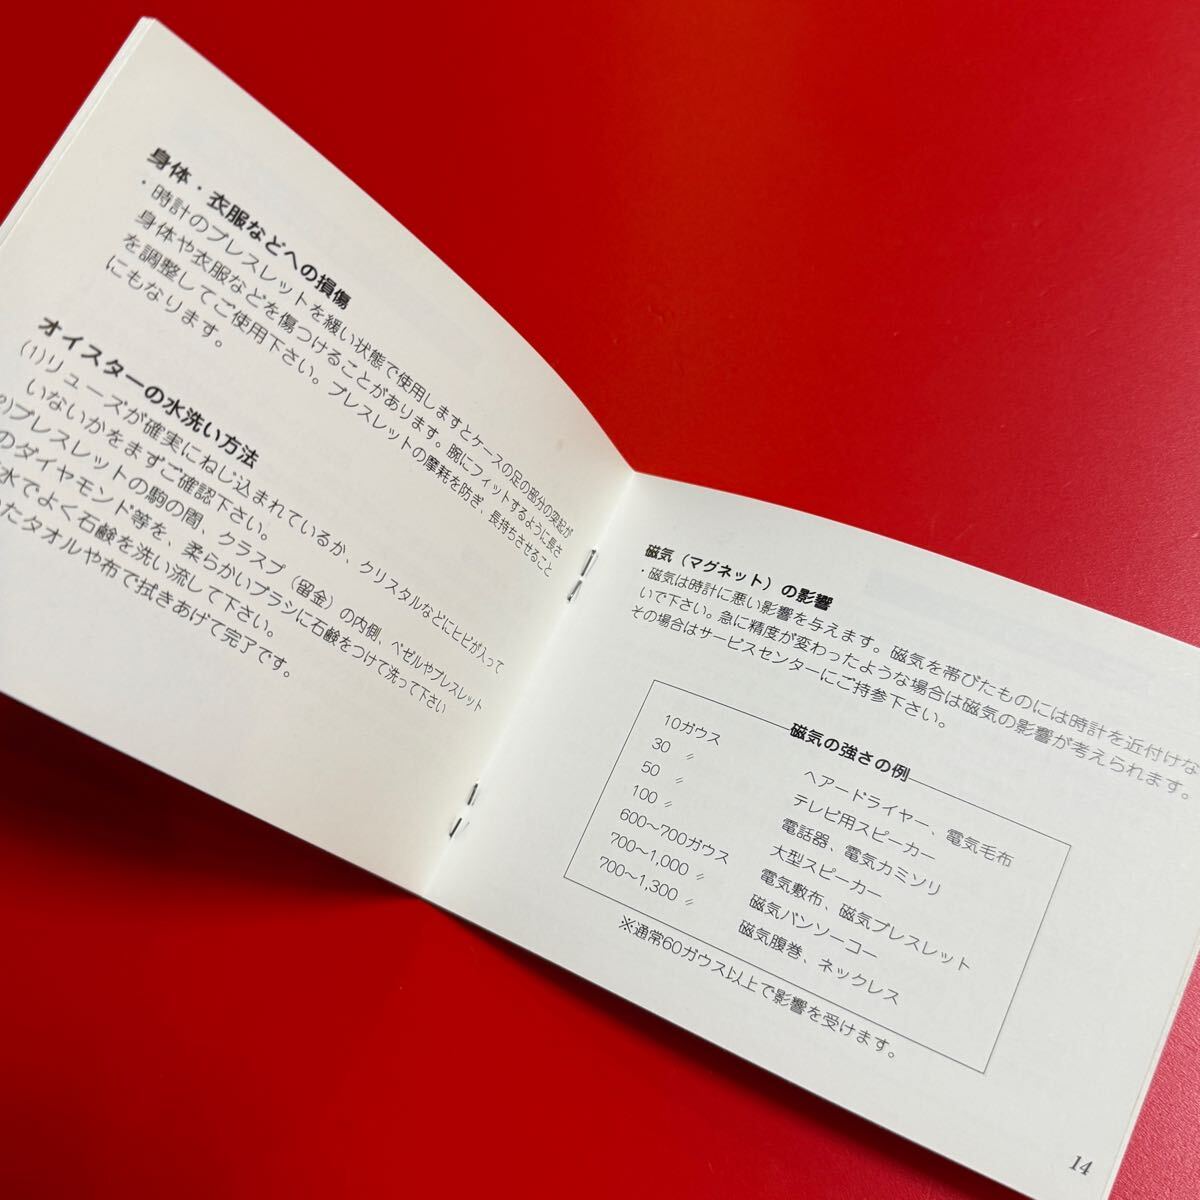 身体・衣服などへの損傷
・時計のブレスレットを緩い状態で使用しますとケースの足の部分の突起が
身体や衣服などを傷つけることがあります。腕にフィットするように長さ
を調整してご使用下さい。ブレスレットの摩耗を防ぎ、長持ちさせること
にもなります。
オイスターの水洗い方法
(1)リューズが確実にねじ込まれているか、クリスタルなどにヒビが入って
いないかをまずご確認下さい。
ブレスレットの駒の間、クラスプ（留金）の内側、ベゼルやブレスレット
のダイヤモンド等を、柔らかいブラシに石鹸をつけて洗って下さい
水でよく石鹸を洗い流して下さい。
たタオルや布で拭きあげて完了です。
磁気（マグネット）の影響
・磁気は時計に悪い影響を与えます。磁気を帯びたものには時計を近付けな
いで下さい。急に精度が変わったような場合は磁気の影響が考えられます。
その場合はサービスセンターにご持参下さい。
磁気の強さの例
10ガウス ヘアードライヤー、電気毛布
30 〃 テレビ用スピーカー
50 〃 電話器、電気カミソリ
100 〃 大型スピーカー
600〜700ガウス 電気敷布、磁気ブレスレット
700〜1,000 〃 磁気バンソーコー
700〜1,300 〃 磁気腹巻、ネックレス
※通常60ガウス以上で影響を受けます。
14